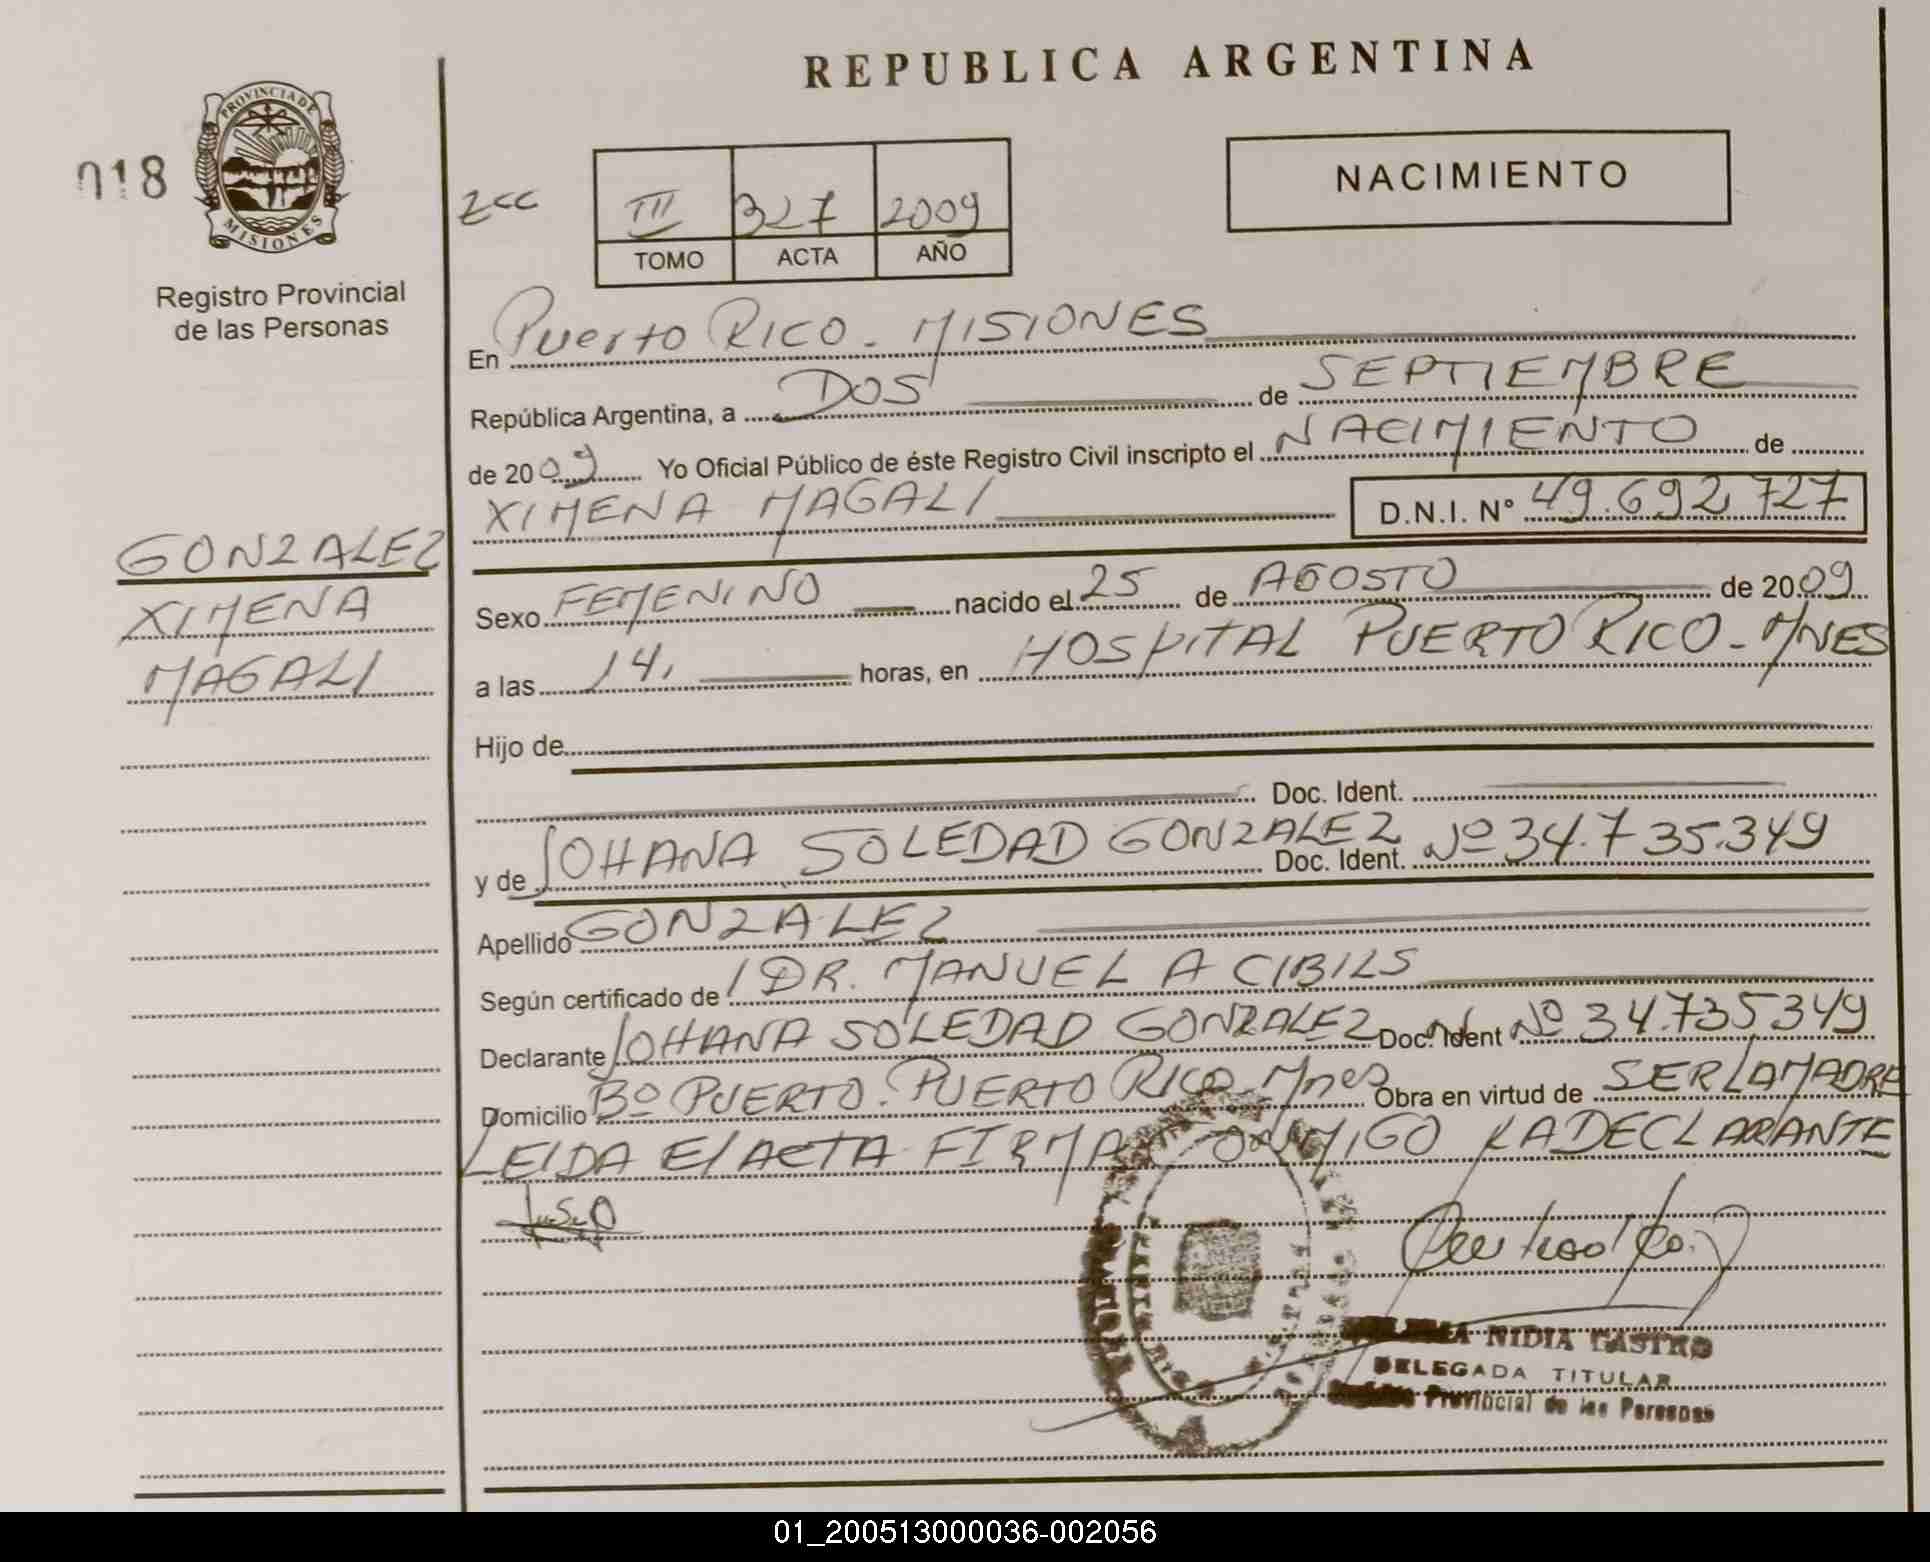 REPUBLICA ARGENTINA
PROVINCIA DE
MISIONES
018
Registro Provincial
de las Personas
NACIMIENTO
III 327 2009
TOMO ACTA AÑO
En Puerto Rico - MISIONES
República Argentina, a DOS de SEPTIEMBRE
de 2009 Yo Oficial Público de éste Registro Civil inscripto el NACIMIENTO de
XIMENA MAGALI D.N.I. N° 49.692.727
GONZALEZ
XIMENA
MAGALI
Sexo FEMENINO nacido el 25 de AGOSTO de 2009
a las 14, horas, en HOSPITAL PUERTO RICO - MNES
Hijo de
Doc. Ident.
y de JOHANA SOLEDAD GONZALEZ Doc. Ident. Nº 34.735.349
Apellido GONZALEZ
Según certificado de DR. MANUEL A CIBILS
Declarante JOHANA SOLEDAD GONZALEZ Doc. Ident Nº 34.735349
Domicilio Bº PUERTO. PUERTO RICO - Mnes Obra en virtud de SER LA MADRE
LEIDA El ACTA FIRMA CONMIGO LA DECLARANTE
NIDIA CASTRO
DELEGADA TITULAR
Registro Provincial de las Personas
01_200513000036-002056